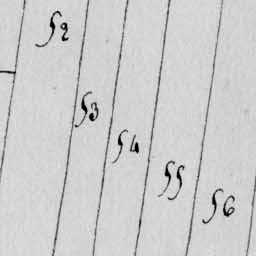 52
53
54
55
56